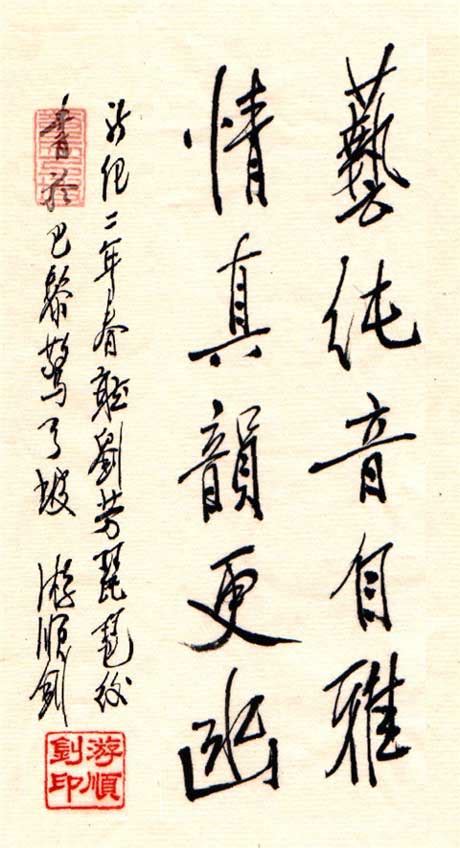 藝純音自雅
情真韻更幽
新紀二年春聽劉芳琵琶後
書於巴黎驚弓坡 游順釗
游順釗印